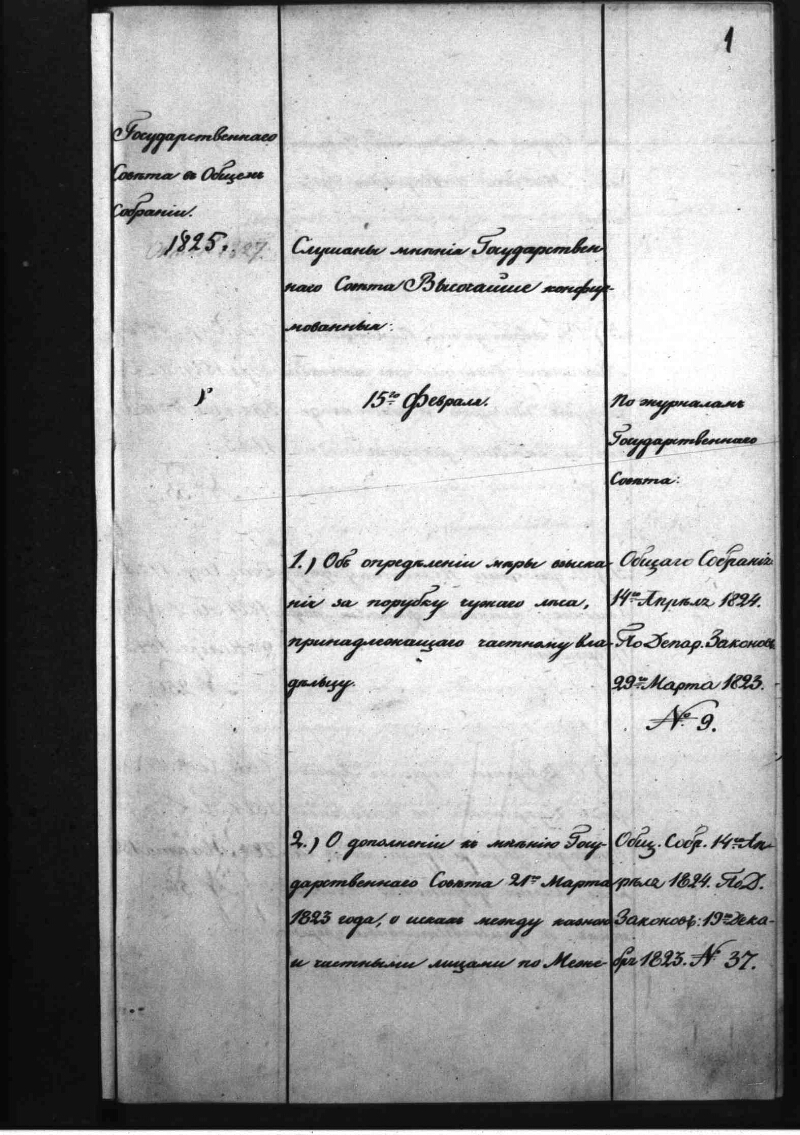 1
Государственнаго
Совѣта въ Общемъ
Собраніи.
1825.
Слушаны мнѣнія Государствен
наго Совѣта Высочайше конфир-
мованныя:
15го Февраля.
По журналамъ
Государственнаго
Совѣта:
1.) Объ опредѣленіи мѣры взыска-
нія за порубку чужаго лѣса,
принадлежащаго частному вла-
дѣльцу.
Общаго Собранія:
14го Апрѣля 1824.
По Депар. Законовъ
29го Марта 1823.
№ 9.
2.) О дополненіи къ мнѣнію Госу-
дарственнаго Совѣта 21го Марта
1823 года, о искахъ между казною
и частными лицами по Меже-
Общ. Собр. 14го Ап-
рѣля 1824. По Д.
Законовъ: 19го Дека-
бря 1823. № 37.